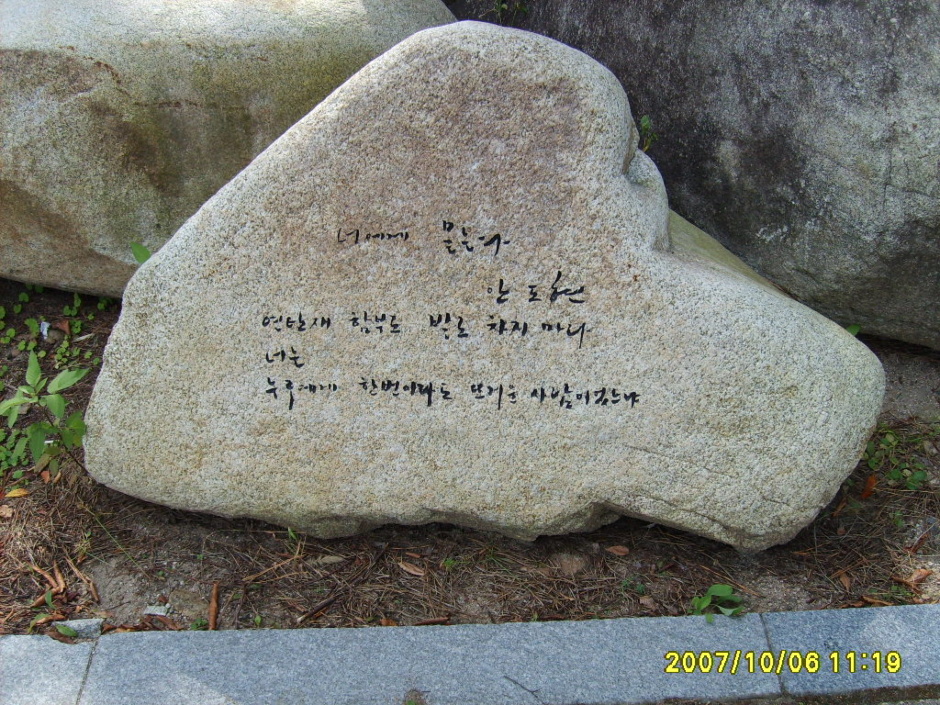 너에게 묻는다
안도현
연탄재 함부로 발로 차지 마라
너는
누구에게 한번이라도 뜨거운 사람이었느냐
2007/10/06 11:19